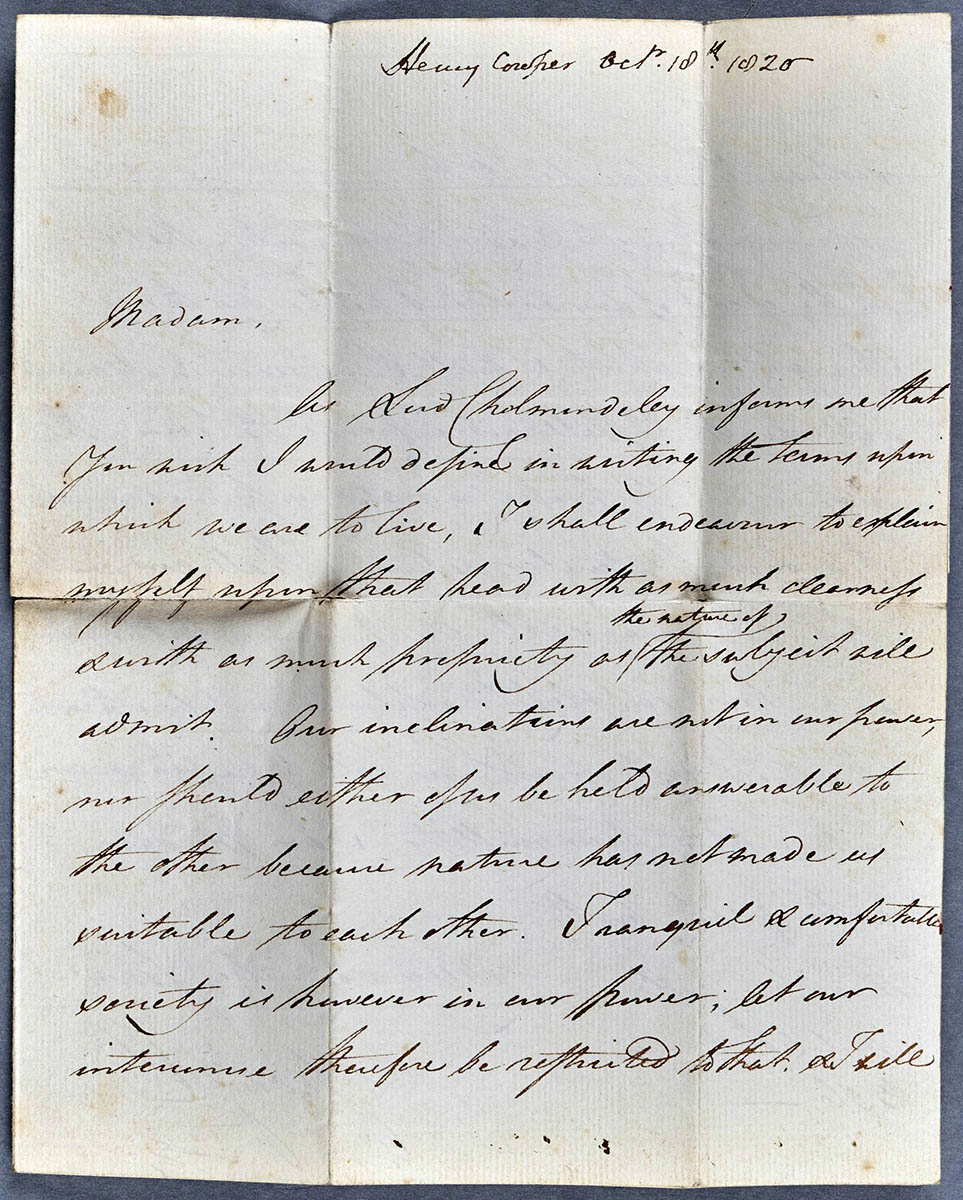 Henry Cowper Octr. 18th. 1820
Madam,
As Lord Cholmondeley informs me that
You wish I would define in writing the terms upon
which we are to live, I shall endeavour to explain
myself upon that head with as much clearness
the nature of
& with as much propriety as the subject will
admit. Our inclinations are not in our power,
nor should either of us be held answerable to
the other because nature has not made us
suitable to each other. Tranquil & comfortable
society is however in our power; let our
intercourse therefore be restricted to that. & I will